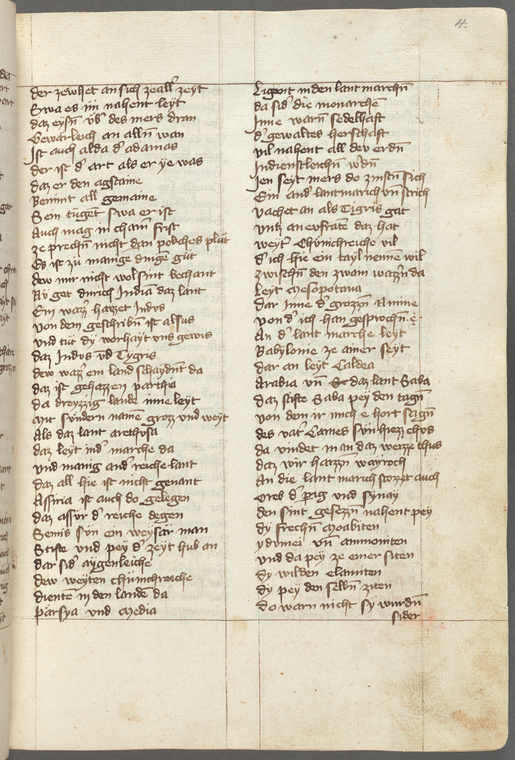 4.
der zewhet an sich zeall' zeyt
Swa es im nahent leyt
daz eysn vb' des mers dran
Gewärleich an alln wan
Ist auch alda d' adamas
der ist d' art als er ye was
daz er den agstaine
Benimt all gemaine
Sein tuget swa er ist
Auch mag in chain frist
ze prechn nicht dan pokches plut
Es ist zu manige dinge gut
dew mir nicht wol sint bechant
Ny get durich India daz lant
Ein waz haizzet Indus
von dem geschribn ist alsus
und tut dy worhayt uns gewis
daz Indus vnd Tygris
dew wazz' ein land schaydnt da
daz ist gehazzen parthia
da dreyzzig lande inne leyt
ane sundern name grozz vnd weyt
Als daz lant arethusa
daz leyt ind' marche da
und manig and' reiche lant
daz all hie ist nicht genant
Assiria ist auch do gelegen
daz assyr d' reiche degen
Semis sun ein weysär man
Stifte und pey d' zeyt hub an
dar sid' aygenleiche
dew weyten chünichreiche
diente in den lande da
Parsya und Media
Ligent in den lant marchn
da sid' die monarche
Inne warn sedelhaft
d' gewaltes herschaft
vil nahent all dev erdn
Indienstleichn w'dn
Jen seyt mers do zinsn sich
Ein and' lantmarich vn strich
vachet an als Tigris gat
untz an eufrate daz hat
weyt' Chünichreiche vil
d' ich hie ein tayl nennen wil
zwischn den zwain wazz'n da
Leyt Mesopotania
dar Inne d' grozzn Ninive
von d' ich han gesprochn e
An d' lant marche leyt
Babylonie ze ainer seyt
dar an leyt Caldea
Arabia vn daz lant Saba
daz stifte Saba pey den tagn
von dem ir mich e hort sagn
des vat' Cames sun hiez chus
da vindet man daz weize thus
daz wir haizzn wayroch
An die lant marich stozzet auch
Oreb d' perg und synay
den sint gesezzn nahent pey
dy frechn Moabiten
ydumei vn ammoniten
und da pey ze einer siten
Dy wilden elamiten
dy pey den selbn ziten
do warn nicht sy wurdn
sider